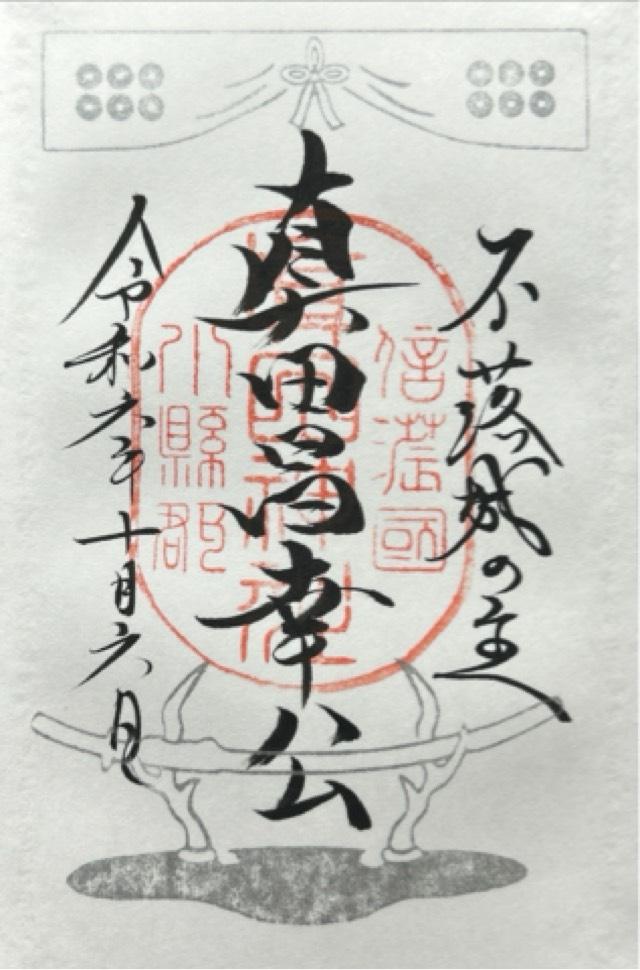 不落城の主
真田昌幸公
信濃國
眞田神社
小縣郡
令和六年十月六日